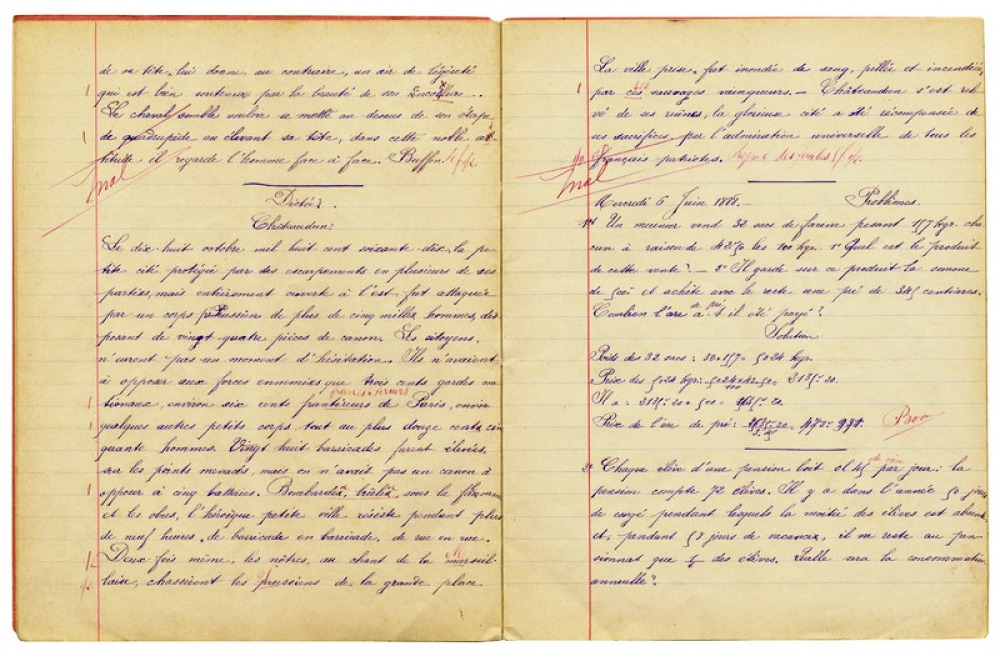 de sa tête, lui donne au contraire, un air de légèreté
qui est bien soutenu par la beauté de son encolure.
Le cheval semble vouloir se mettre au dessus de son état
de quadrupède en élevant sa tête, dans cette noble at-
titude il regarde l'homme face à face. Buffon.
mal
Dictée.
Châteaudun.
Le dix-huit octobre mil huit cent soixante-dix, la pe-
tite cité protégée par des escarpements en plusieurs de ses
parties, mais entièrement ouverte à l'est, fut attaquée
par un corps Prussien de plus de cinq milles hommes, dis-
posant de vingt-quatre pièces de canon. Les citoyens,
n'eurent pas un moment d'hésitation. Ils n'avaient
à opposer aux forces ennemies que trois cents gardes na
francs-tireurs
tionaux, environ six cents frantireurs de Paris, envir
quelques autres petits corps tout au plus douze cents cin
quante hommes. Vingt huit barricades furent élevées,
sur les points menacés, mais on n'avait pas un canon à
opposer à cinq batteries. Bombardée, brûlée sous la flamme
et les obus, l'héroïque petite ville résiste pendant plus
de neuf heures, de barricade en barricade, de rue en rue.
Deux fois même, les nôtres, au chant de la marseil-
laise, chassèrent les prussiens de la grande place
La ville prise, fut inondée de sang, pillée et incendiée,
par ces sauvages vainqueurs. — Châteaudun s'est rele
vé de ses ruines, la glorieuse cité a été récompensée de
ses sacrifices par l'admiration universelle de tous les
français patriotes.
mal
Mercredi 6 Juin 1888. — Problèmes.
1er Un meunier vend 32 sacs de farine pesant 157 kgr. cha
cun à raison de 42f50 les 100 kgr. 1° Quel est le produit
de cette vente? — 2° Il garde sur ce produit la somme
de 500f et achète avec le reste une pré de 345 centiares.
Combien l'are de pré a-t-il été payé?
Solution
Poids des 32 sacs : 32 × 157 = 5024 kgr.
Prix des 5024 kgr: 5024 × 42,50 / 100 = 2135f 20.
Il a : 2135f 20 - 500 = 1635f 20.
Prix de l'are de pré :
Bon
2e Chaque élève d'une pension boit 0l45 de vin par jour : la
pension compte 72 élèves. Il y a dans l'année 50 jours
de congé pendant lesquels la moitié des élèves est absente
et, pendant 58 jours de vacances, il ne reste au pen-
sionnat que des élèves. Quelle sera la consommation
annuelle?